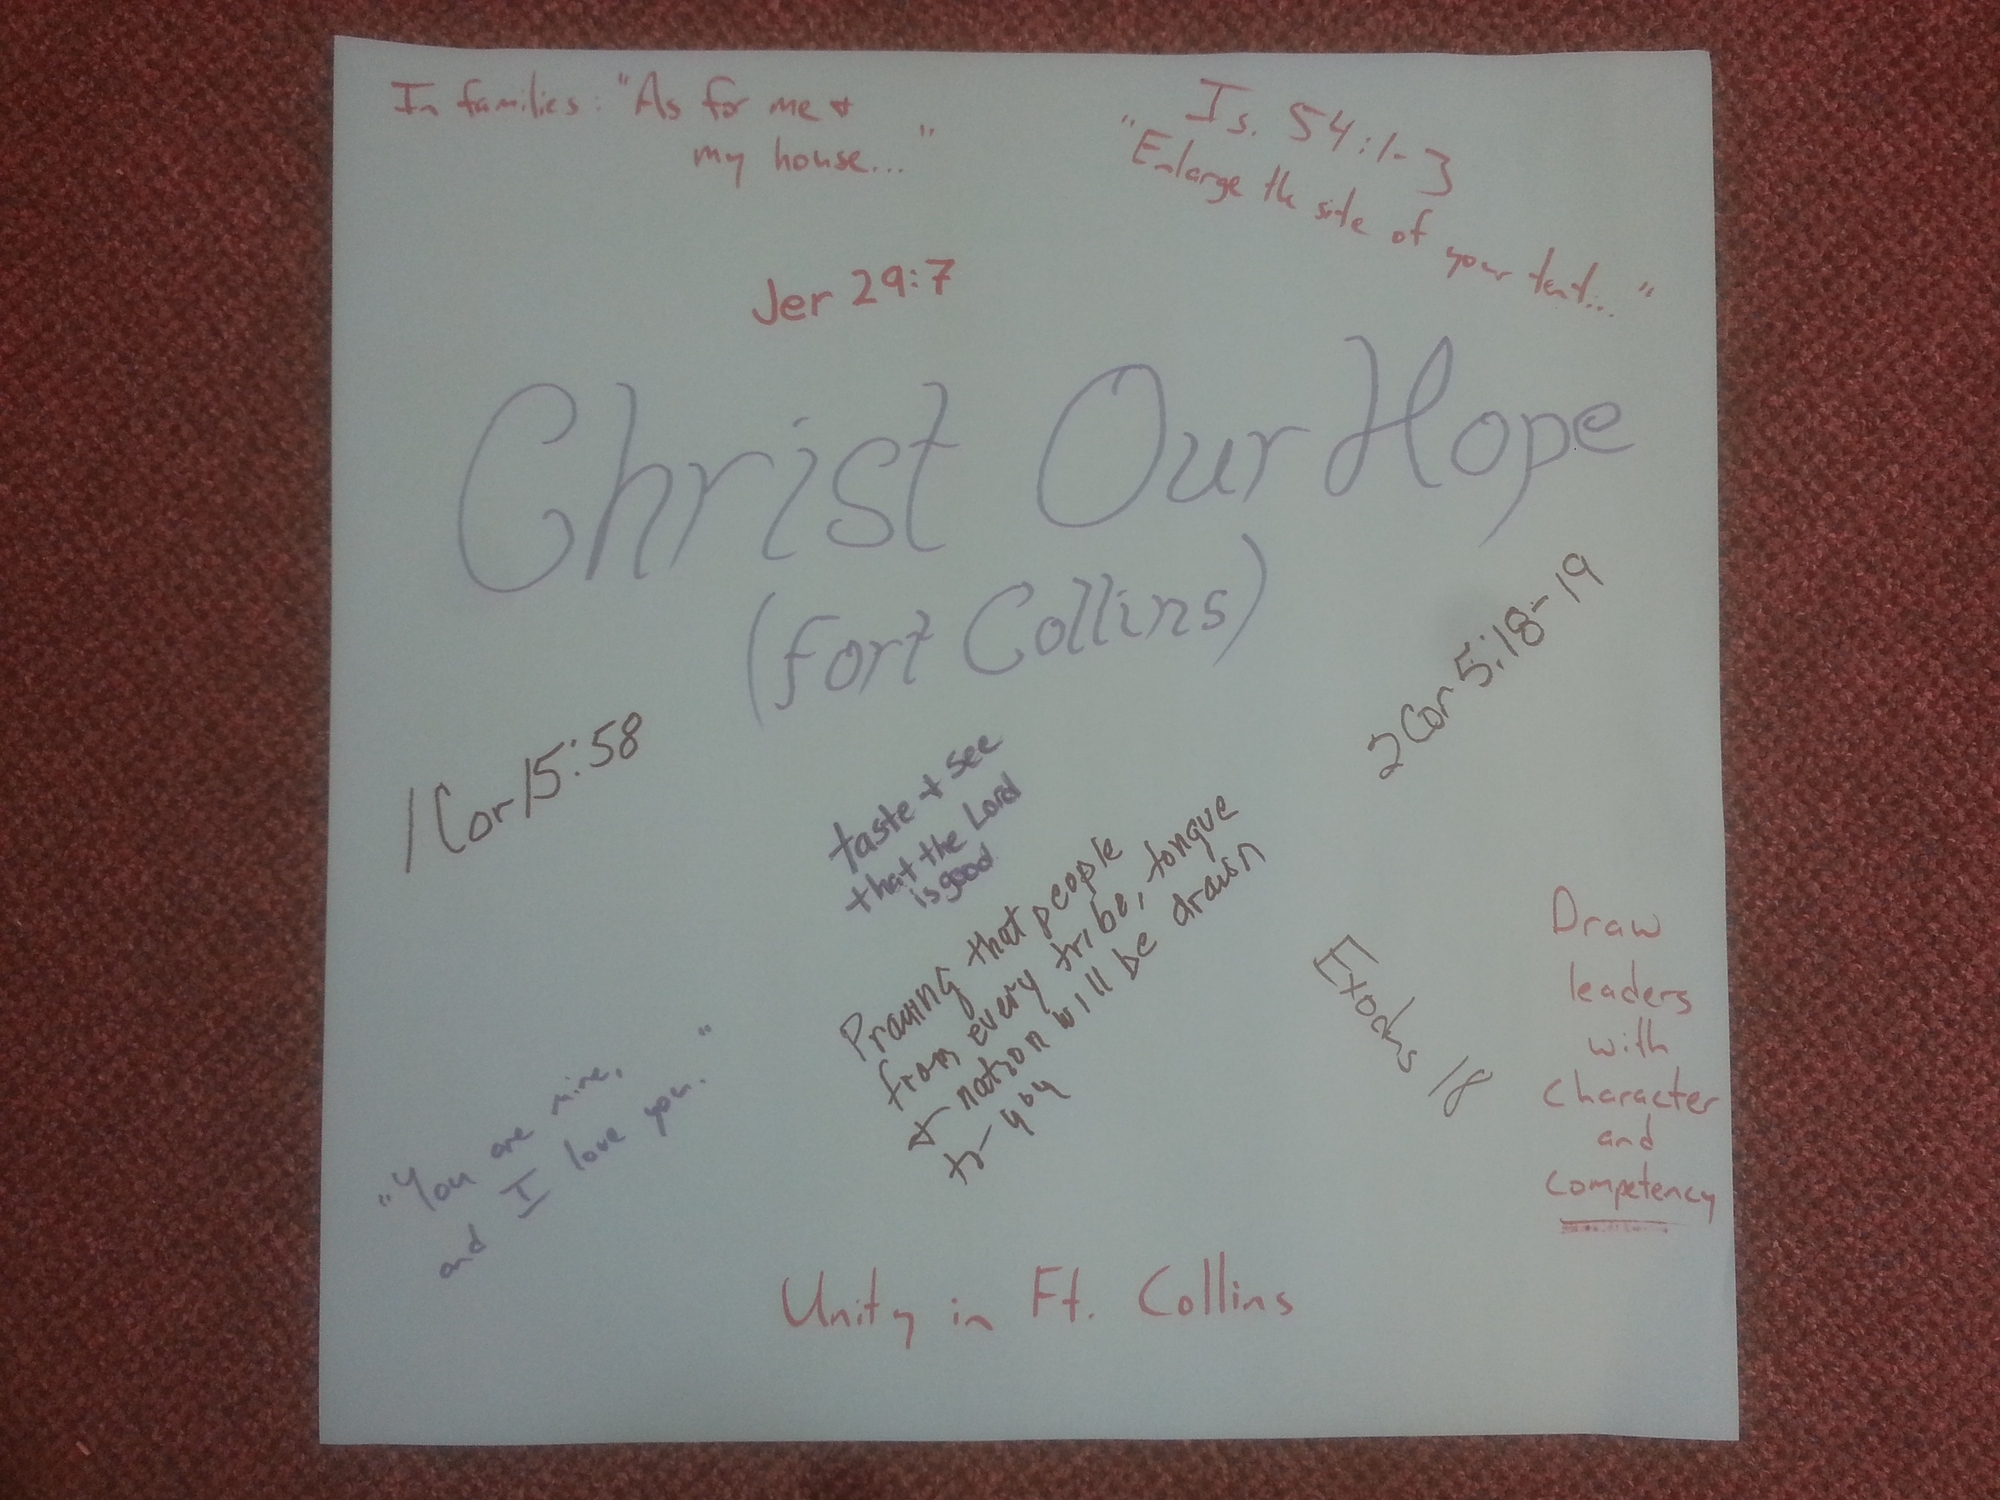 In families: "As for me &
my house..."
Is. 54:1-3
"Enlarge the site of your tent..."
Jer 29:7
Christ Our Hope
(Fort Collins)
2 Cor 5:18-19
1 Cor 15:58
taste & see
that the Lord
is good
Praying that people
from every tribe, tongue
& nation will be drawn
Exodus 18
Draw
leaders
with
character
and
competency
"You are mine,
and I love you."
Unity in Ft. Collins